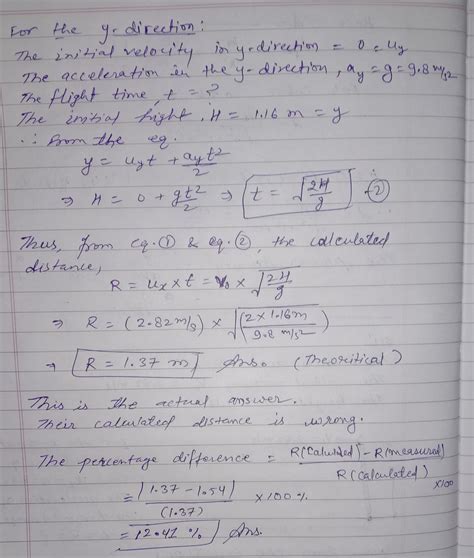 For the y-direction:
The initial velocity in y-direction = 0 = uy
The acceleration in the y-direction, ay = g = 9.8 m/s2
The flight time, t = ?
The initial hight, H = 1.16 m = y
∴ from the eq.
y = uyt + ayt²/2
⇒ H = 0 + gt²/2 ⇒ t = √(2H/g) ②
Thus, from eq. ① & eq. ②, the calculated
distance,
R = ux × t = v0 × √(2H/g)
⇒ R = (2.82 m/s) × √(2×1.16m/9.8 m/s²)
⇒ R = 1.37 m Ans. (Theoritical)
This is the actual answer.
Their calculated distance is wrong.
The percentage difference = R(Calculated) - R(measured)/R(calculated) ×100
= |1.37 - 1.54|/(1.37) ×100 %
= 12.41 % Ans.